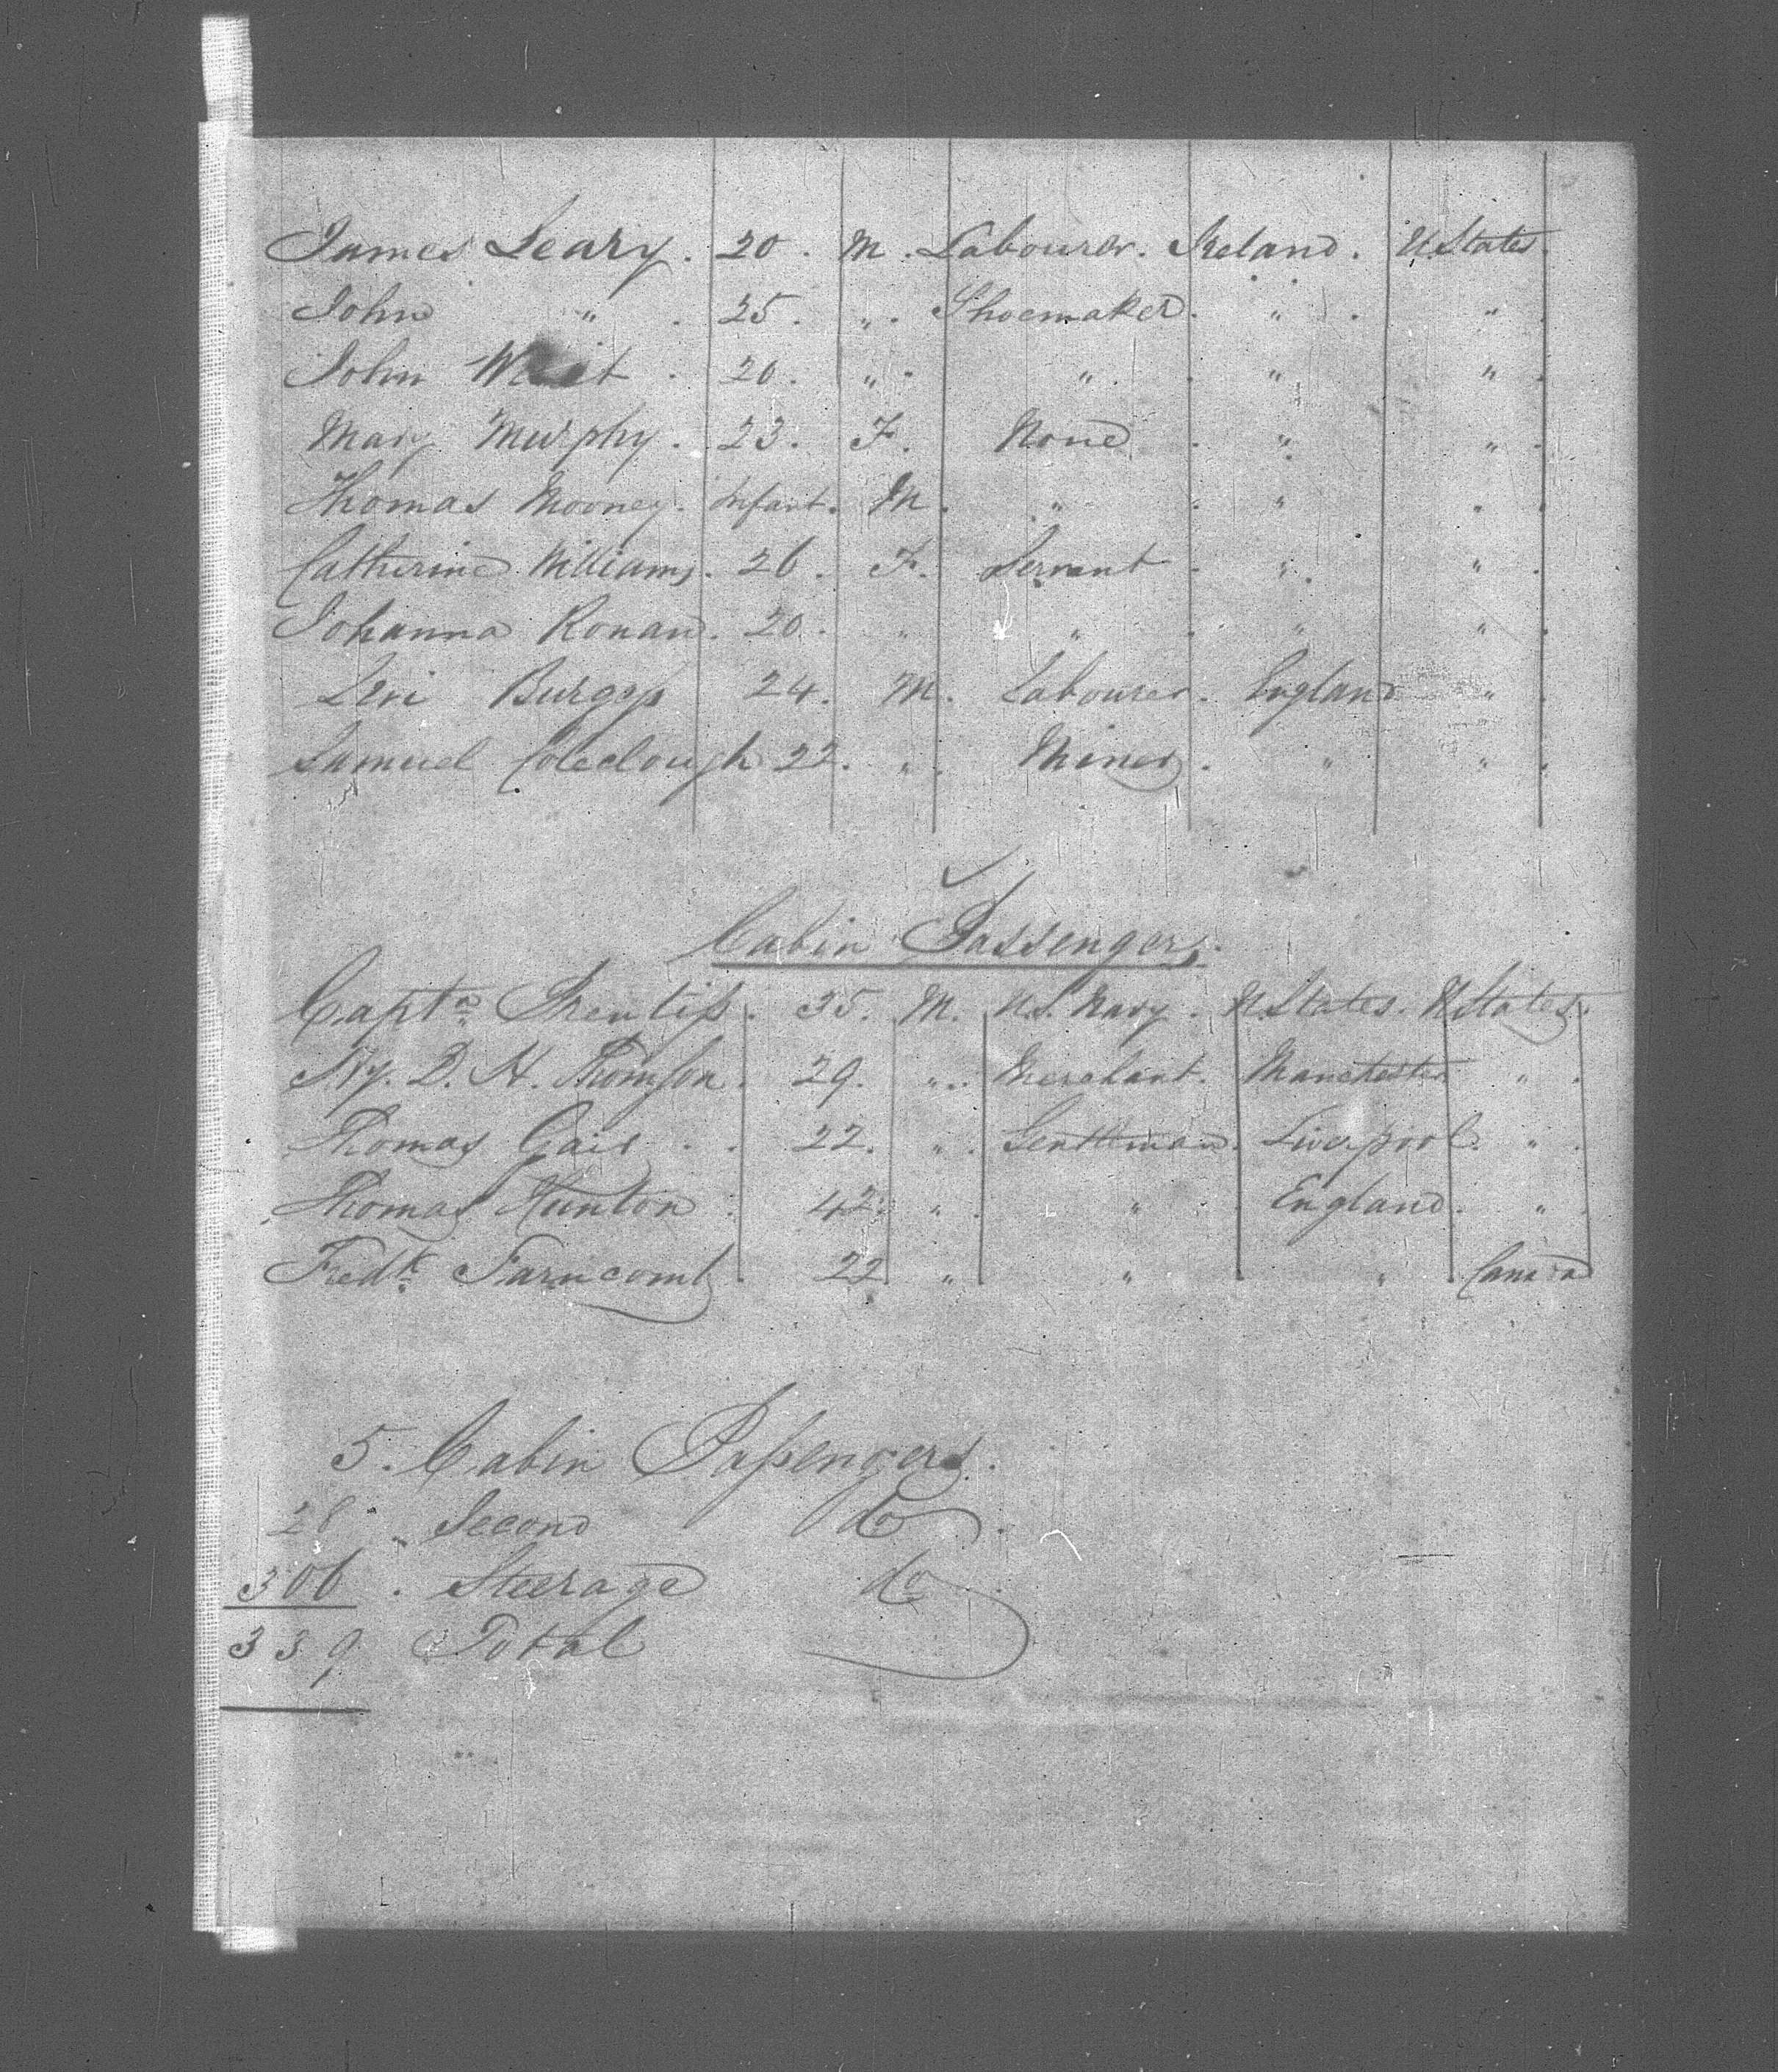 James Leary. 20. M. Labourer. Ireland. U States.
John " . 25. " . Shoemaker. " . " .
John . 20. " . " . " " .
Mary Murphy. 23. F. None . " " .
Thomas Mooney. Infant. M. " . " " .
Catherine Williams. 26. F. Servant . " . " .
Johanna Ronan. 20. " " . " " .
Levi Burgess 24. M. Labourer. England " .
Samuel Coleclough 22. " . Miner. " " .
Cabin Passengers.
Capt.n Prentiss. 35. M. U.S. Navy. U States. U States.
Wy. D. H. Thomson. 29. " . Merchant. Manchester " .
Thomas Gair . . 22. " . Gentleman. Liverpool. " .
Thomas Hunton . 42. " . " . England. " .
Fredk. Farncomb. 22 " " " Canada
5. Cabin Passengers.
28 " Second do .
306 . Steerage do .
339 Total